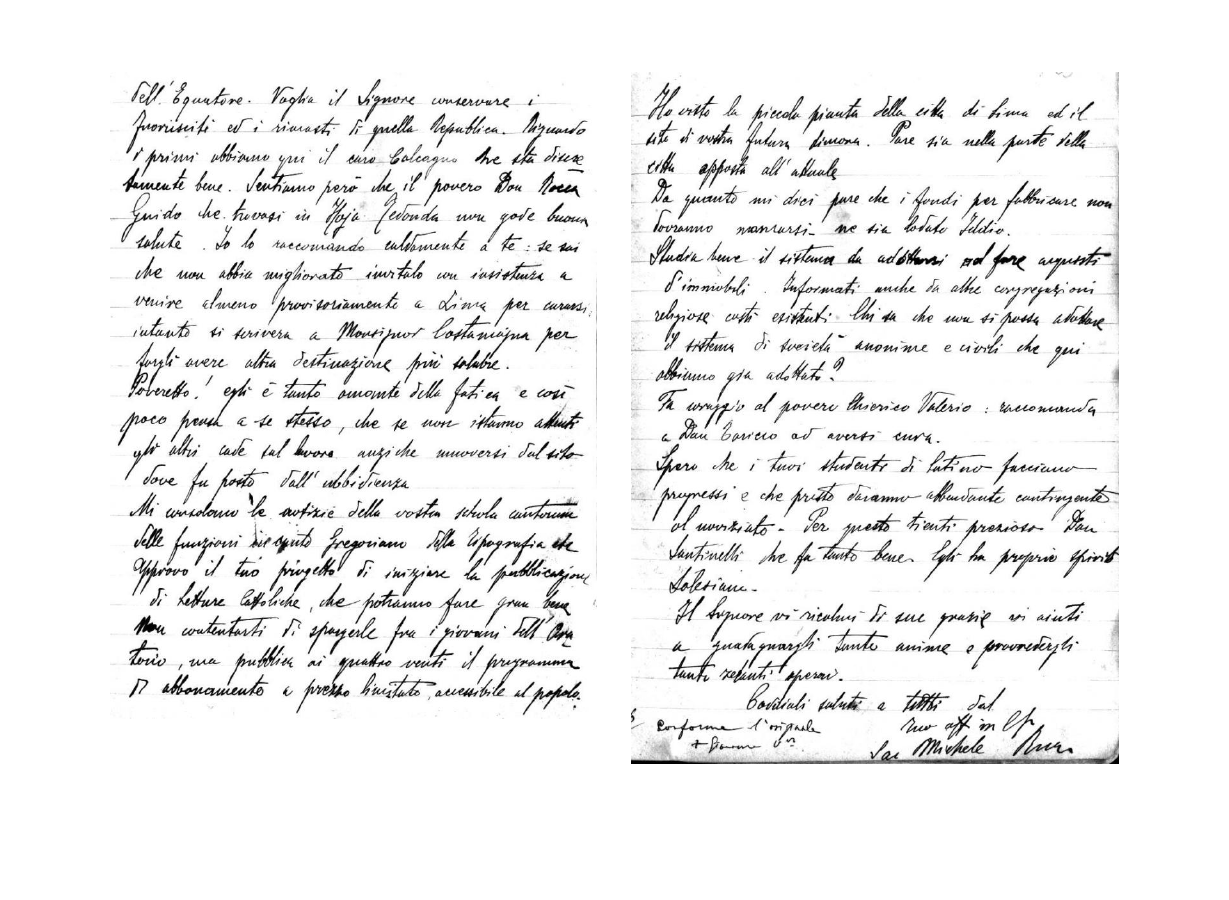 dell'Equatore. Voglia il Signore conservare i
fuorusciti ed i rimasti di quella Republica. Riguardo
i primi abbiamo qui il caro Calcagno che sta discre
tamente bene. Sentiamo però che il povero Don Rocca
Guido che trovasi in Hoja Redonda non gode buona
salute. Io lo raccomando caldamente a te: se sai
che non abbia migliorato invitalo con insistenza a
venire almeno provvisoriamente a Lima per curarsi,
intanto si scrivera a Monsignor Costamagna per
fargli avere altra destinazione più salubre.
Poveretto! egli è tanto amante della fatica e così
poco pensa a se stesso, che se non istanno attenti
gli altri cade sul lavoro anziche muoversi dal sito
dove fu posto dall'ubbidienza
Mi consolano le notizie della vostra schola cantorum
delle funzioni in canto Gregoriano della Tipografia etc
Approvo il tuo progetto di iniziare la pubblicazione
di Letture Cattoliche, che potranno fare gran bene
Non contentarti di spargerle fra i giovani dell'Ora
torio, ma pubblica ai quattro venti il programma
di abbonamento a prezzo limitato, accessibile al popolo.
Ho visto la piccola pianta della città di Lima ed il
sito di vostra futura dimora. Pare sia nella parte della
città opposta all'attuale
Da quanto mi dici pare che i fondi per fabbricare non
dovranno mancarsi - ne sia lodato Iddio.
Studia bene il sistema da adottarsi ad fare acquisti
d'immobili. Informati anche da altre congregazioni
religiose costi esistenti. Chi sa che non si possa adottare
il sistema di società anonime e civili che qui
abbiamo gia adottato?
Fa coraggio al povero Chierico Valerio: raccomanda
a Don ad aversi cura.
Spero che i tuoi studenti di latino facciano
progressi e che presto daranno abbondante contingente
al noviziato - Per questo tienti prezioso Don
Santinelli che fa tanto bene. Egli ha proprio spirito
Salesiano.
Il Signore vi ricolmi di sue grazie vi aiuti
a guadagnargli tante anime e provvedergli
tanti zelanti operai.
Cordiali saluti a tutti dal
conforme l'originale
tuo aff in
Sac Michele Rua